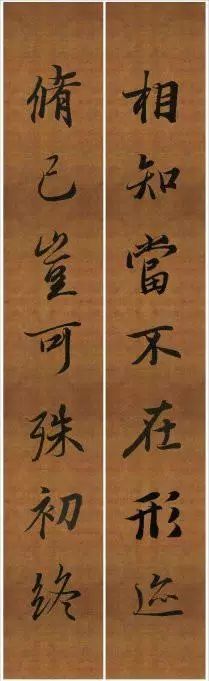 相知當不在形迹
脩己豈可殊初終